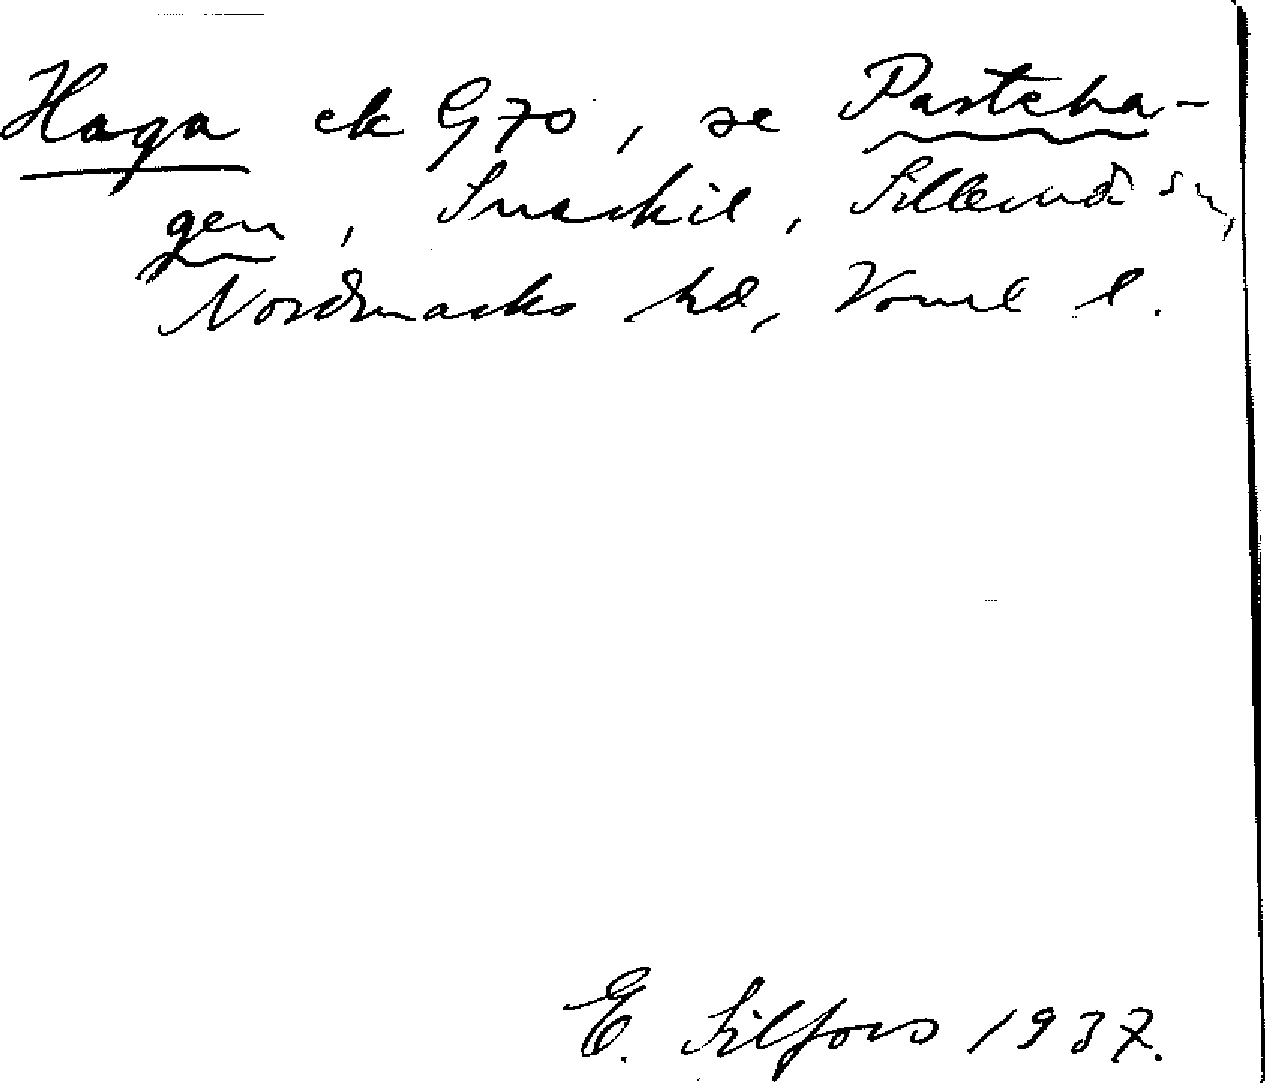 Haga ek G70, se Parteha-
gen, Snarkil, Sillerud sn,
Nordmarks hd, Värml l.
E. Silfors 1937.